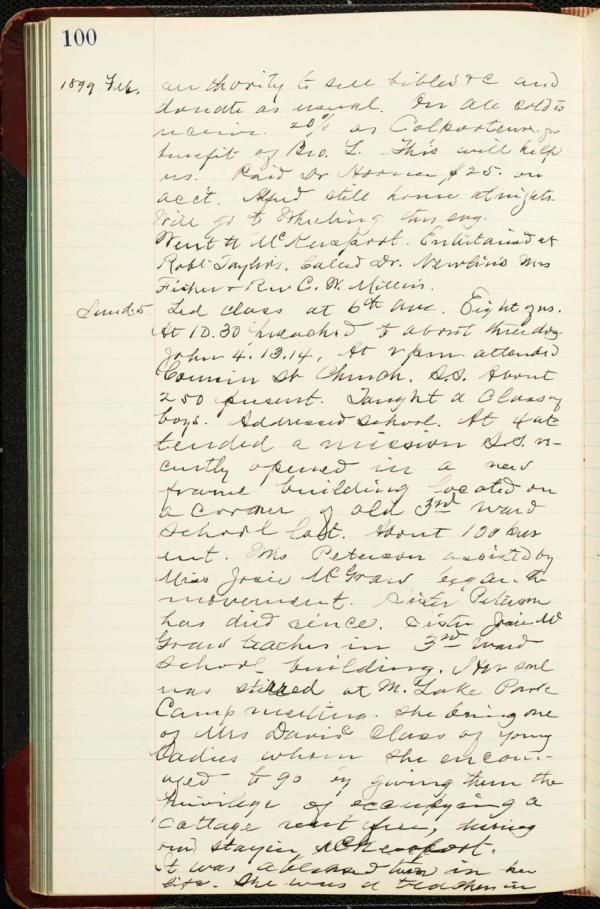 100
1899 Feb. authority to sell bibles &c and
donate as usual. On all sold to
receive 20% as Colporteur for
benefit of Bro. L. This will help
us. Paid Dr Horner $25. on
acc't. Alfred still home at nights.
Will go to Wheeling this eng.
Went to McKeesport. Entertained at
Robt Taylor's. Called Dr. Newlin's Mrs
Fisher & Rev C. W. Millers.
Sund 5 Led class at 6th Ave. Eight gns.
At 10.30 preached to about three doz
John 4.13.14. At 2 pm. attended
Cousin St Church. S.S. About
250 present. Taught a Class of
boys. Addressed School. At 4 at-
tended a mission S.S. re-
cently opened in a new
frame building located on
a corner of old 3rd ward
School lot. About 100 pres
ent. Mrs Peterson assisted by
Miss Josie McGraw began the
movement. Sister Peterson
has died since. Sister Josie Mc
Graw teaches in 3rd ward
School building. Her soul
was stirred at M. Lake Park
Camp meeting. She being one
of Mrs Davis Class of Young
Ladies whom she encour-
aged to go by giving them the
privilege of occupying a
Cottage rent free, during
stay in McKeesport.
It was a blessed in her
life. She was a teacher in